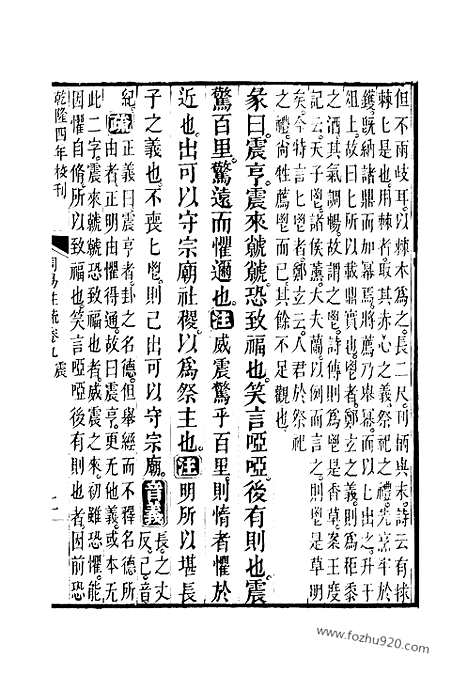 但不兩歧耳。以棘木爲之。長二尺。刊柄與末。詩云有捄
棘匕是也。用棘者。取其赤心之義。祭祀之禮。先烹牢於
鑊。既納諸鼎而加羃焉。將薦乃舉羃。而以匕出之。升于
俎上。故曰匕所以載鼎實也。鬯者。鄭玄之義。則爲秬黍
之酒。其氣調暢。故謂之鬯。詩傳則爲鬯是香草。案王度
記云。天子鬯。諸侯薰。大夫蘭。以例而言之。則鬯是草明
矣。今特言匕鬯者。鄭玄云。人君於祭祀
之禮。尚牲薦鬯而已。其餘不足觀也。
彖曰。震亨。震來虩虩。恐致福也。笑言啞啞。後有則也。震
驚百里。驚遠而懼邇也。注威震驚乎百里。則惰者懼於
近也。出可以守宗廟社稷。以爲祭主也。注明所以堪長
子之義也。不喪匕鬯。則己出可以守宗廟。音義長之丈反。己音
紀。疏正義曰震亨者。卦之名德。但舉經而不釋名德所
由者。正明由懼得通。故曰震亨。更无他義。或本无
此二字。震來虩虩恐致福也者。威震之來。初雖恐懼。能
因懼自脩。所以致福也。笑言啞啞後有則也者。因前恐
乾隆四年校刊 周易注疏卷九 震
www.fozhu920.com